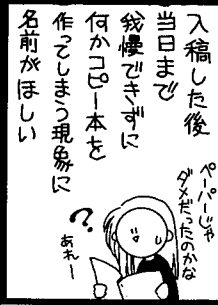 入稿した後
当日まで
我慢できずに
何かコピー本を
作ってしまう現象に
名前がほしい
ペーパーじゃ
ダメだったのかな
?
あれー